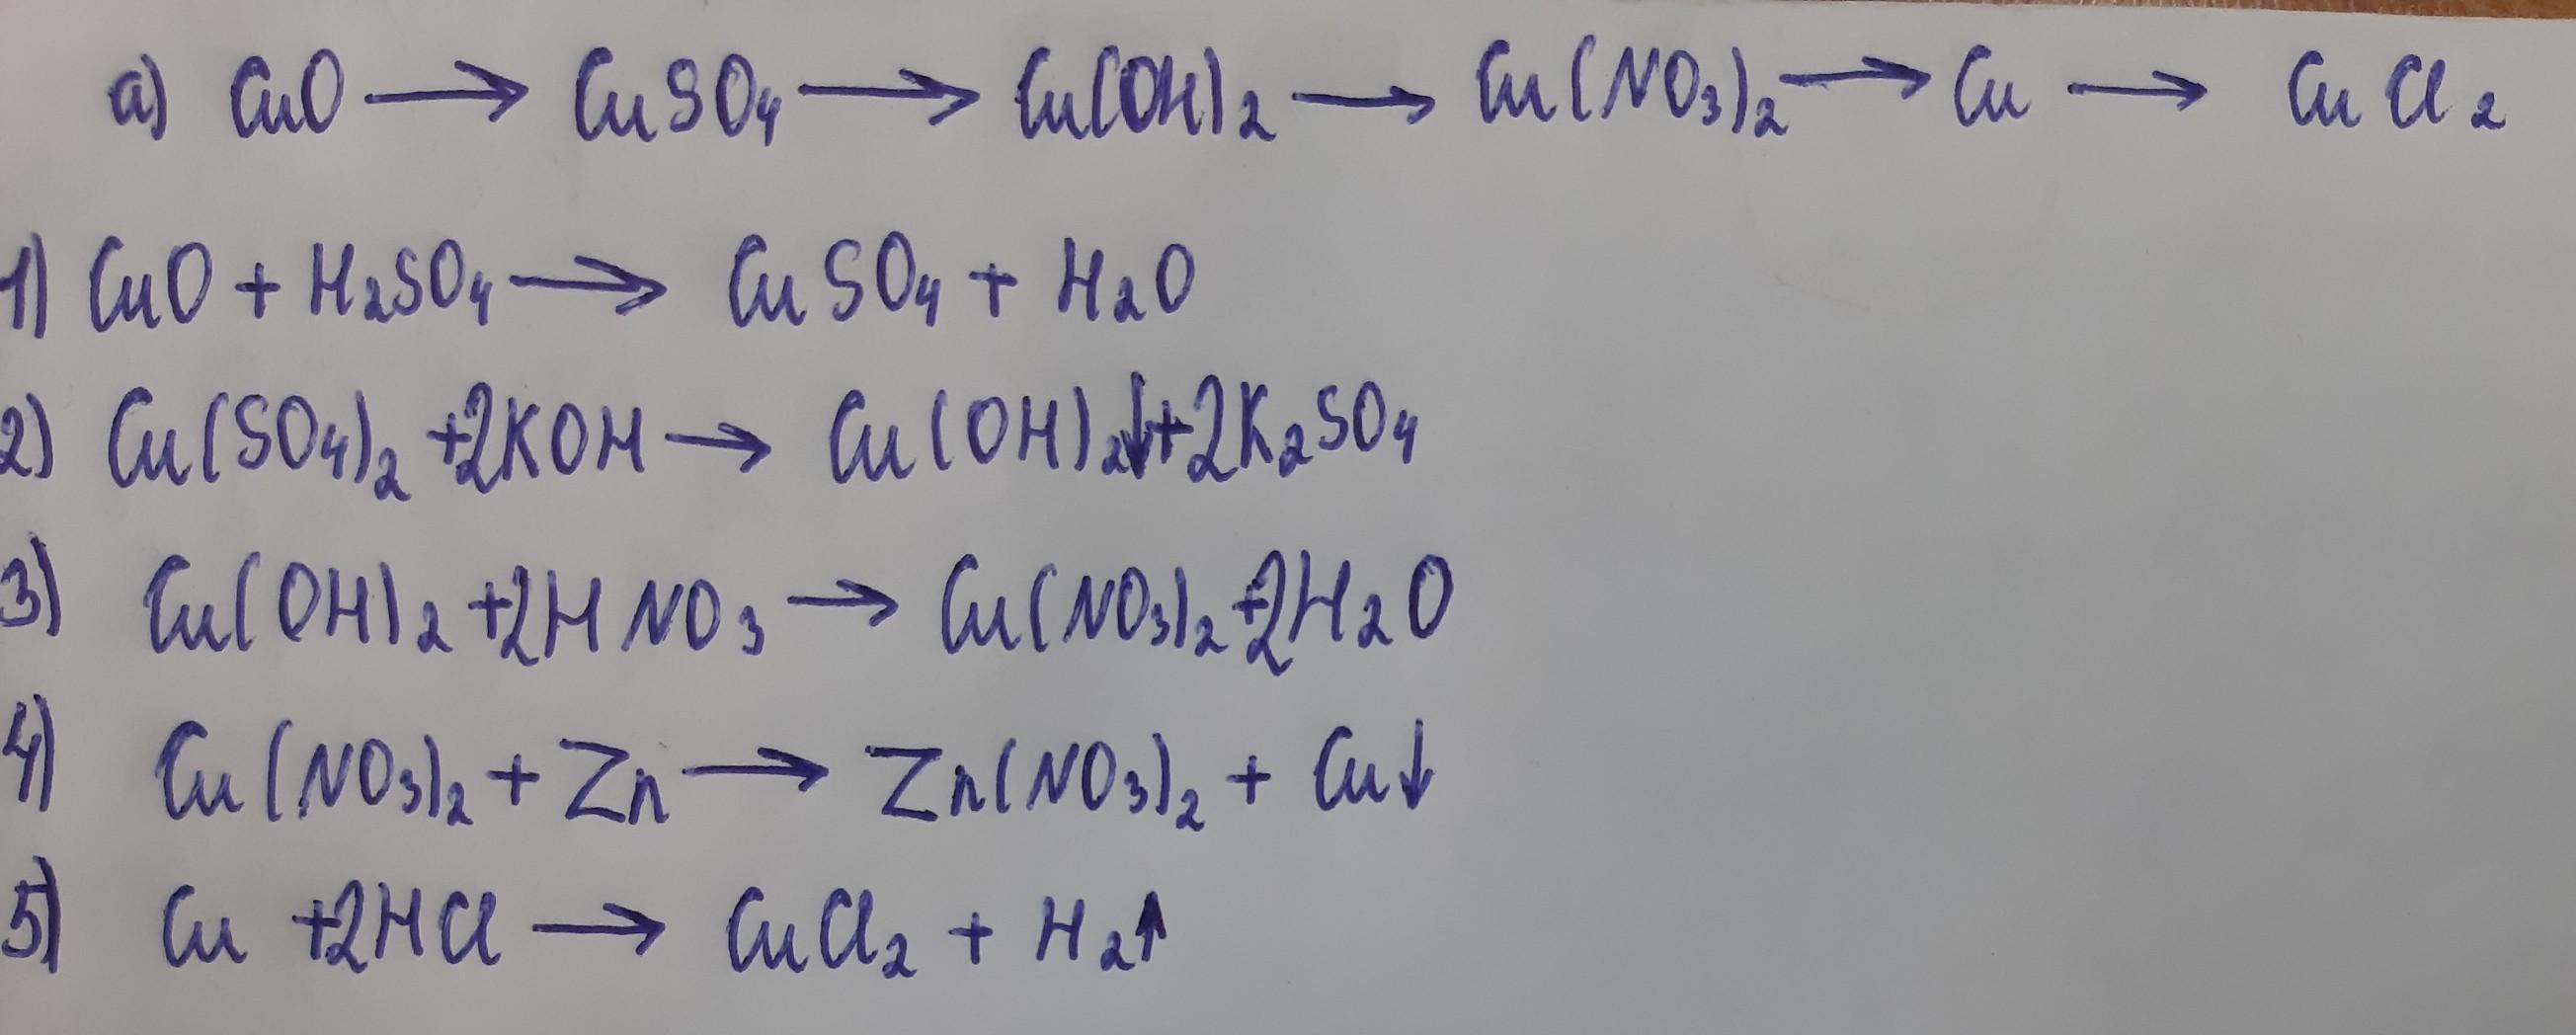 а) CuO → CuSO₄ → Cu(OH)₂ → Cu(NO₃)₂ → Cu → CuCl₂
1) CuO + H₂SO₄ → CuSO₄ + H₂O
2) Cu(SO₄)₂ + 2KOH → Cu(OH)₂↓ + 2K₂SO₄
3) Cu(OH)₂ + 2HNO₃ → Cu(NO₃)₂ + 2H₂O
4) Cu(NO₃)₂ + Zn → Zn(NO₃)₂ + Cu↓
5) Cu + 2HCl → CuCl₂ + H₂↑